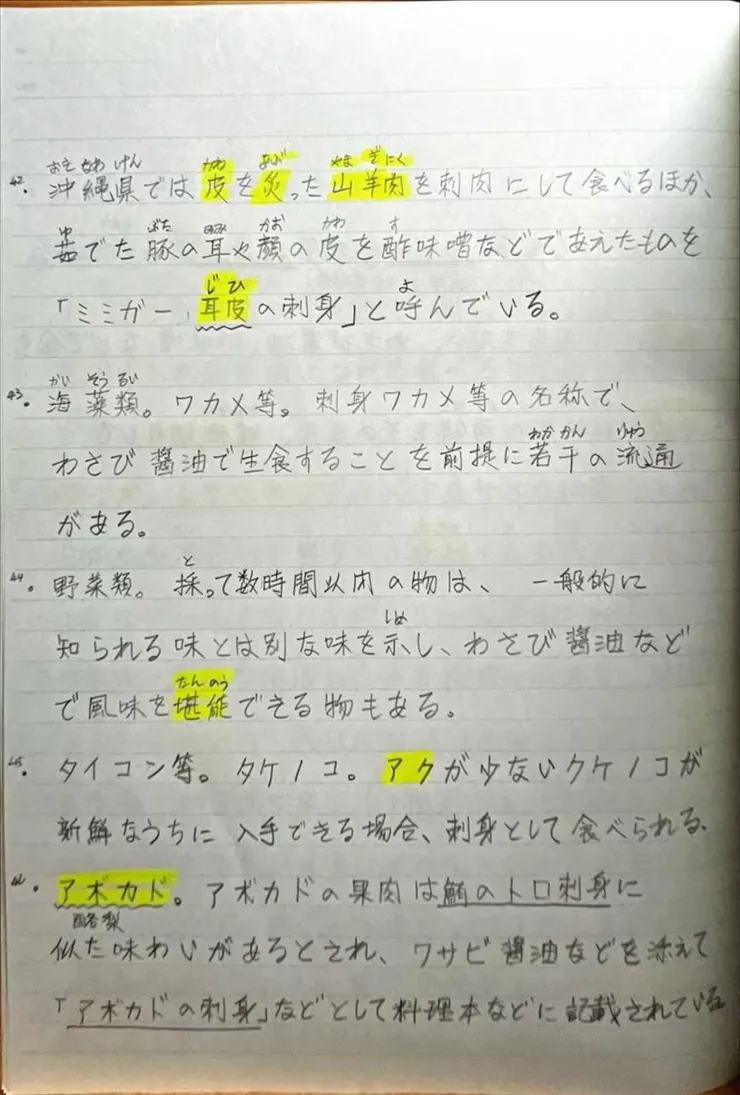 おきなわけん かわ あぶ やまぎにく
42. 沖縄県では皮を炙った山羊肉を刺肉にして食べるほか、
ゆ ぶた みみ かお かわ す
茹でた豚の耳や顔の皮を酢味噌などであえたものを
じひ よ
「ミミガー 耳皮の刺身」と呼んでいる。
かい そう るい
43. 海藻類。ワカメ等。刺身ワカメ等の名称で、
わかかん りゅう
わさび醤油で生食することを前提に若干の流通
がある。
と
44. 野菜類。採って数時間以内の物は、一般的に
しめ
知られる味とは別な味を示し、わさび醤油など
たんのう
で風味を堪能できる物もある。
45. タイコン等。タケノコ。アクが少ないクケノコが
新鮮なうちに入手できる場合、刺身として食べられる、
アボカド。アボカドの果肉は鮪のトロ刺身に
酪梨
似た味わいがあるとされ、ワサビ醤油などを添えて
「アボカドの刺身」などとして料理本などに記載されている